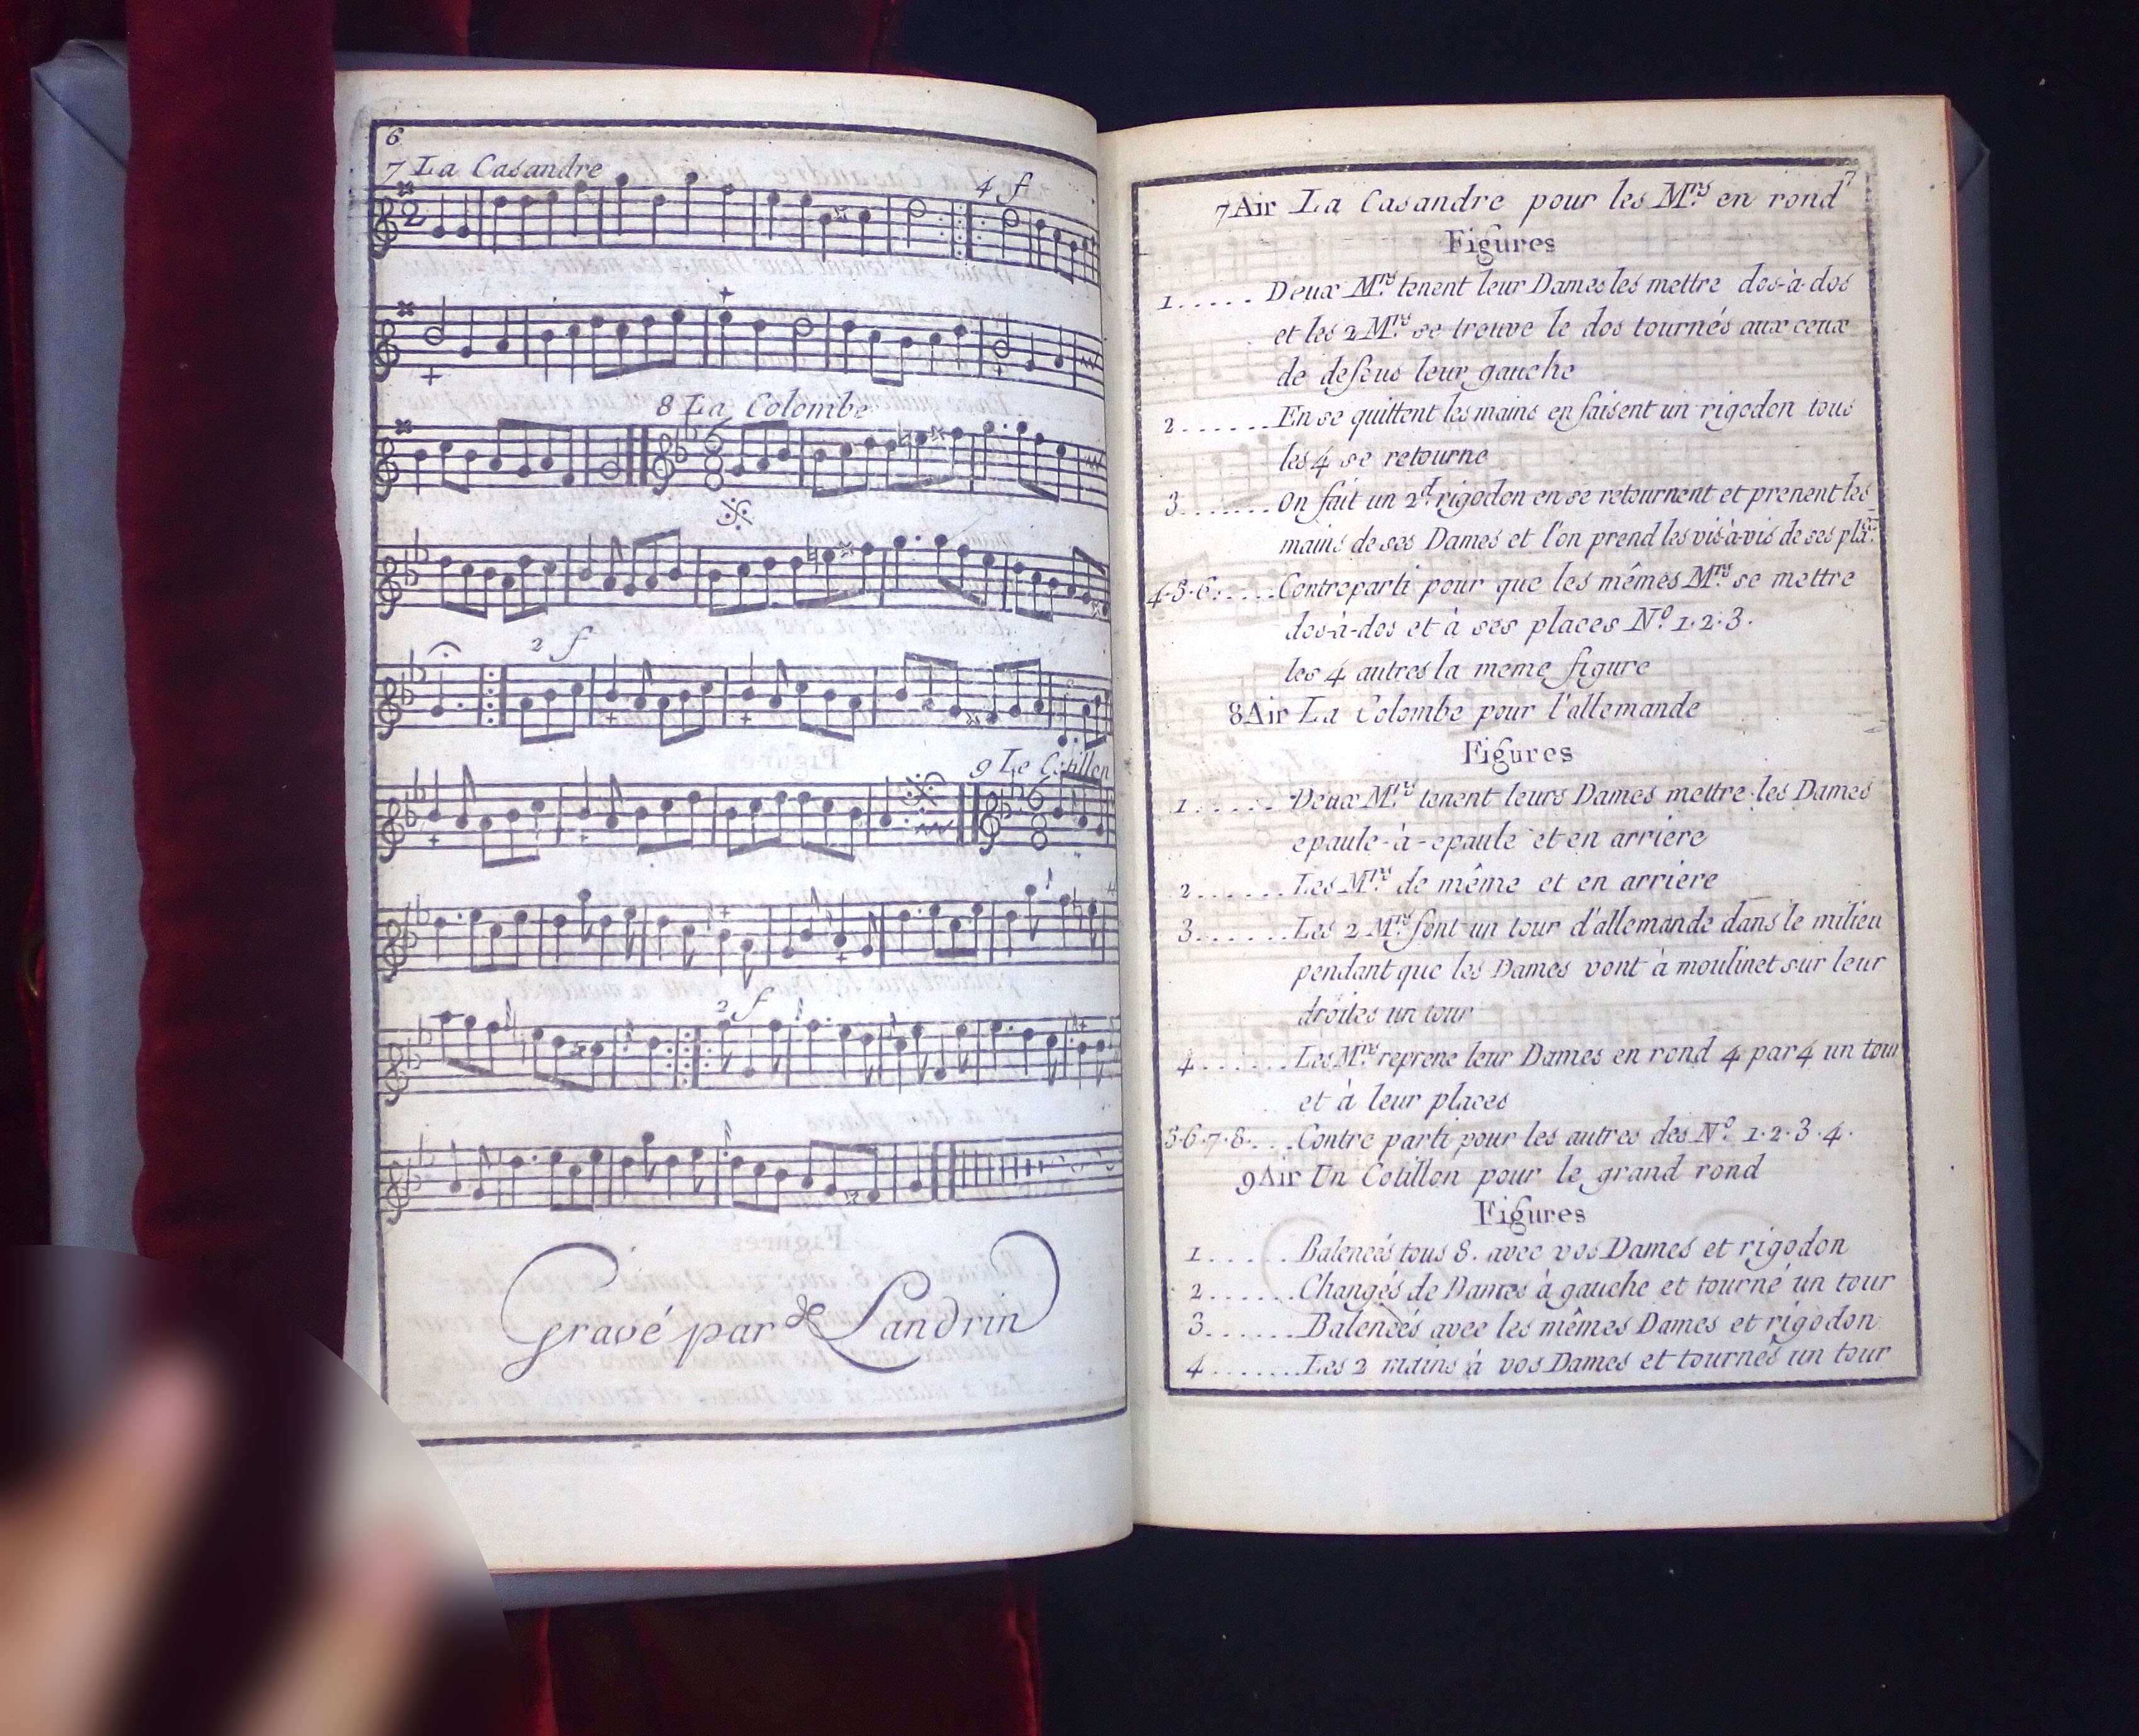 6
7 La Casandre
4 f
8 La Colombe
2 f
9 Le Cotillon
2 f
Gravé par de Landrin
7
7 Air La Casandre pour les Mrs. en rond
Figures
1..... Deux Mrs. tenent leur Dames les mettre dos-à-dos
et les 2 Mrs. se trouve le dos tournés aux ceux
de desous leur gauche
2...... En se quittent les mains en faisent un rigodon tous
les 4 se retourne
3....... On fait un 2d. rigodon en se retournent et prenent les
mains de ses Dames et l'on prend les vis-à-vis de ses
4·5·6..... Contreparti pour que les mêmes Mrs. se mettre
dos-à-dos et à ses places No. 1·2·3.
les 4 autres la meme figure
8 Air La Colombe pour l'allemande
Figures
1...... Deux Mrs. tenent leurs Dames mettre les Dames
epaule-à-epaule et en arriere
2....... Les Mrs. de même et en arriere
3...... Les 2 Mrs. font un tour d'allemande dans le milieu
pendant que les Dames vont à moulinet sur leur
droites un tour
4....... Les Mrs. reprene leur Dames en rond 4 par 4 un tour
et à leur places
5·6·7·8... Contre parti pour les autres des No. 1·2·3·4.
9 Air Un Cotillon pour le grand rond
Figures
1...... Balencés tous 8. avec vos Dames et rigodon
2...... Changés de Dames à gauche et tourné un tour
3...... Balencés avec les mêmes Dames et rigodon
4....... Les 2 mains à vos Dames et tournés un tour